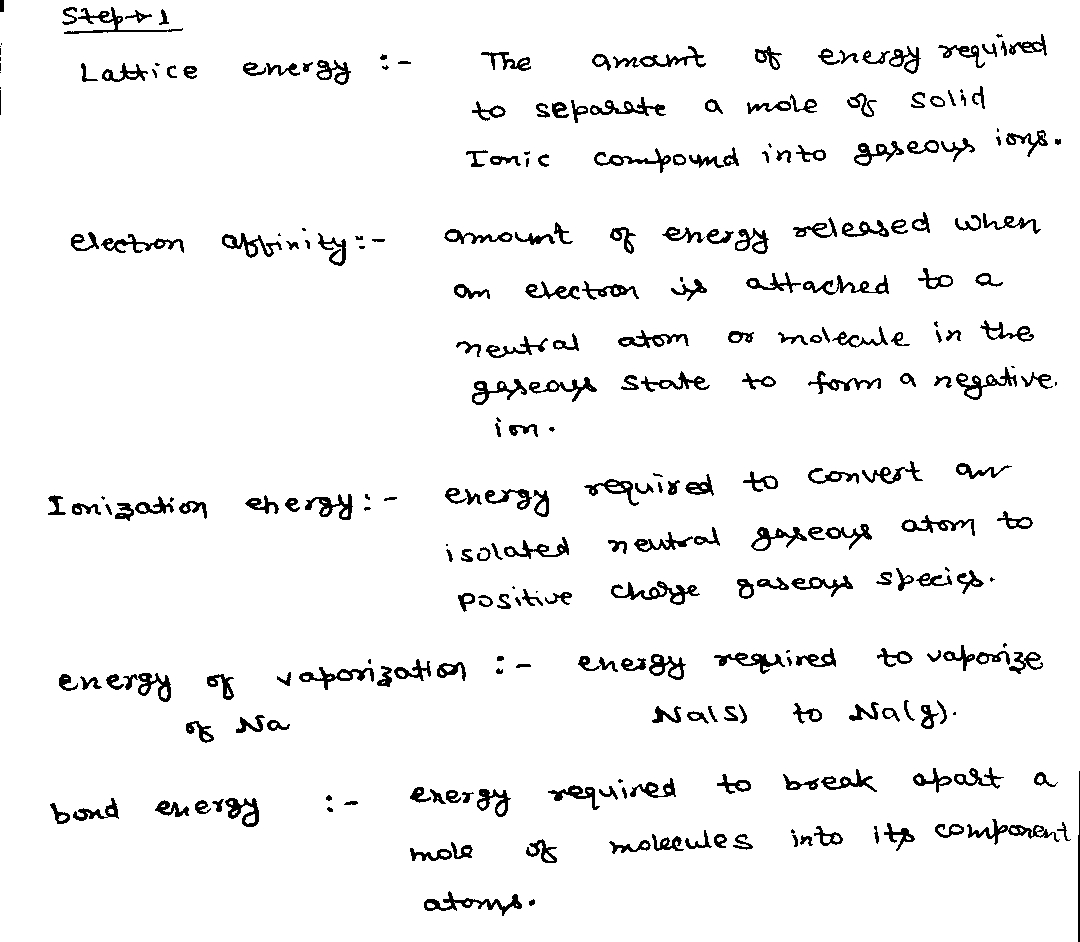 Step→1
Lattice energy :- The amount of energy required
to separate a mole of solid
Ionic compound into gaseous ions.
electron affinity:- amount of energy released when
an electron is attached to a
neutral atom or molecule in the
gaseous state to form a negative.
ion.
Ionization energy:- energy required to convert an
isolated neutral gaseous atom to
positive charge gaseous species.
energy of vaporization :- energy required to vaporize
of Na Na(s) to Na(g).
bond energy :- energy required to break apart a
mole of molecules into its component
atoms.